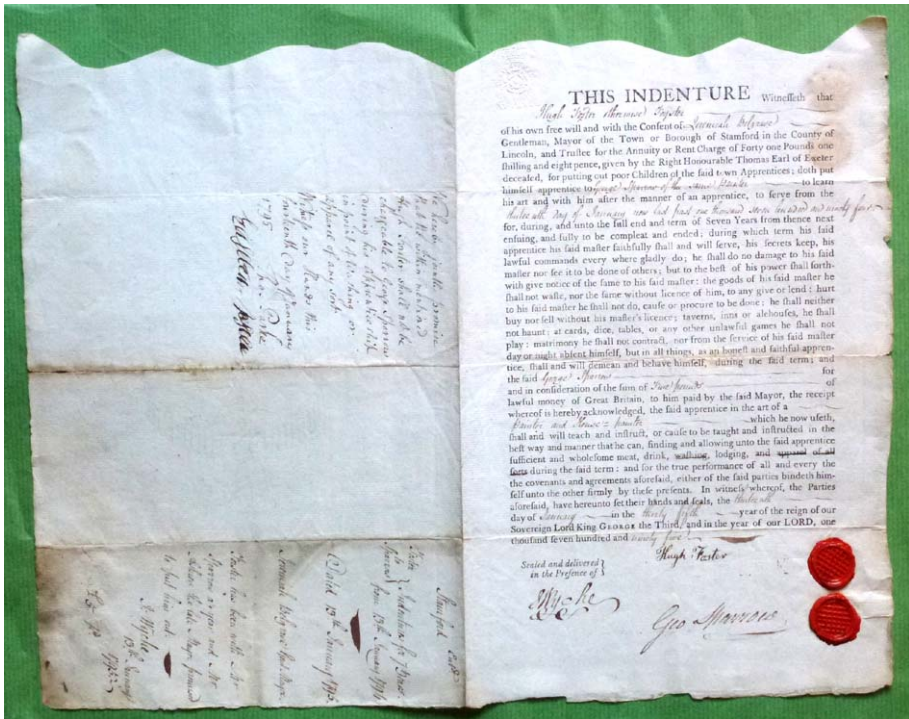 THIS INDENTURE Witneſſeth that
Hugh Foſter otherwiſe
of his own free will and with the Conſent of Jeremiah Belgrave
Gentleman, Mayor of the Town or Borough of Stamford in the County of
Lincoln, and Truſtee for the Annuity or Rent Charge of Forty one Pounds one
ſhilling and eight pence, given by the Right Honourable Thomas Earl of Exeter
deceaſed, for putting out poor Children of the ſaid town Apprentices; doth put
himſelf apprentice to George Sparrow of the ſame Painter to learn
his art and with him after the manner of an apprentice, to ſerve from the
thirteenth day of January now laſt paſt one thouſand ſeven hundred and ninety five
for, during, and unto the full end and term of Seven Years from thence next
enſuing, and fully to be compleat and ended; during which term his ſaid
apprentice his ſaid maſter faithfully ſhall and will ſerve, his ſecrets keep, his
lawful commands every where gladly do; he ſhall do no damage to his ſaid
maſter nor ſee it to be done of others; but to the beſt of his power ſhall forth-
with give notice of the ſame to his ſaid maſter: the goods of his ſaid maſter he
ſhall not waſte, nor the ſame without licence of him, to any give or lend; hurt
to his ſaid maſter he ſhall not do, cauſe or procure to be done; he ſhall neither
buy nor ſell without his maſter's licence; taverns, inns or alehouſes, he ſhall
not haunt; at cards, dice, tables, or any other unlawful games he ſhall not
play: matrimony he ſhall not contract, nor from the ſervice of his ſaid maſter
day or night abſent himſelf, but in all things, as an honeſt and faithful appren-
tice, ſhall and will demean and behave himſelf, during the ſaid term; and
the ſaid George Sparrow for
and in conſideration of the ſum of Five Pounds of
lawful money of Great Britain, to him paid by the ſaid Mayor, the receipt
whereof is hereby acknowledged, the ſaid apprentice in the art of a
Painter and Houſe-painter which he now uſeth,
ſhall and will teach and inſtruct, or cauſe to be taught and inſtructed in the
beſt way and manner that he can, finding and allowing unto the ſaid apprentice
ſufficient and wholeſome meat, drink, waſhing, lodging, and apparel of all
ſorts during the ſaid term: and for the true performance of all and every the
the covenants and agreements aforeſaid, either of the ſaid parties bindeth him-
ſelf unto the other firmly by theſe preſents. In witneſs whereof, the Parties
aforeſaid, have hereunto ſet their hands and ſeals, the thirteenth
day of January in the thirty fifth year of the reign of our
Sovereign Lord King GEORGE the Third, and in the year of our LORD, one
thouſand ſeven hundred and ninety five.
Hugh Foster
Sealed and delivered }
in the Preſence of }
Wyche
Geo Sparrow
We whoſe hands promiſe
Hugh Foster ſhall not be
chargeable to George Sparrow
during his apprenticeſhip
in point of cloathing or
apparel of any ſort
Witneſs our Hands this
fourteenth Day of January
1795
Stamford
Foster
to
Sparrow
Indenture for 7 Years
from 13th January 1795
Dated 13th January 1795
Jeremiah Belgrave Eſq Mayor
Foster has been with
to put him out
Wyche
13th January
1795